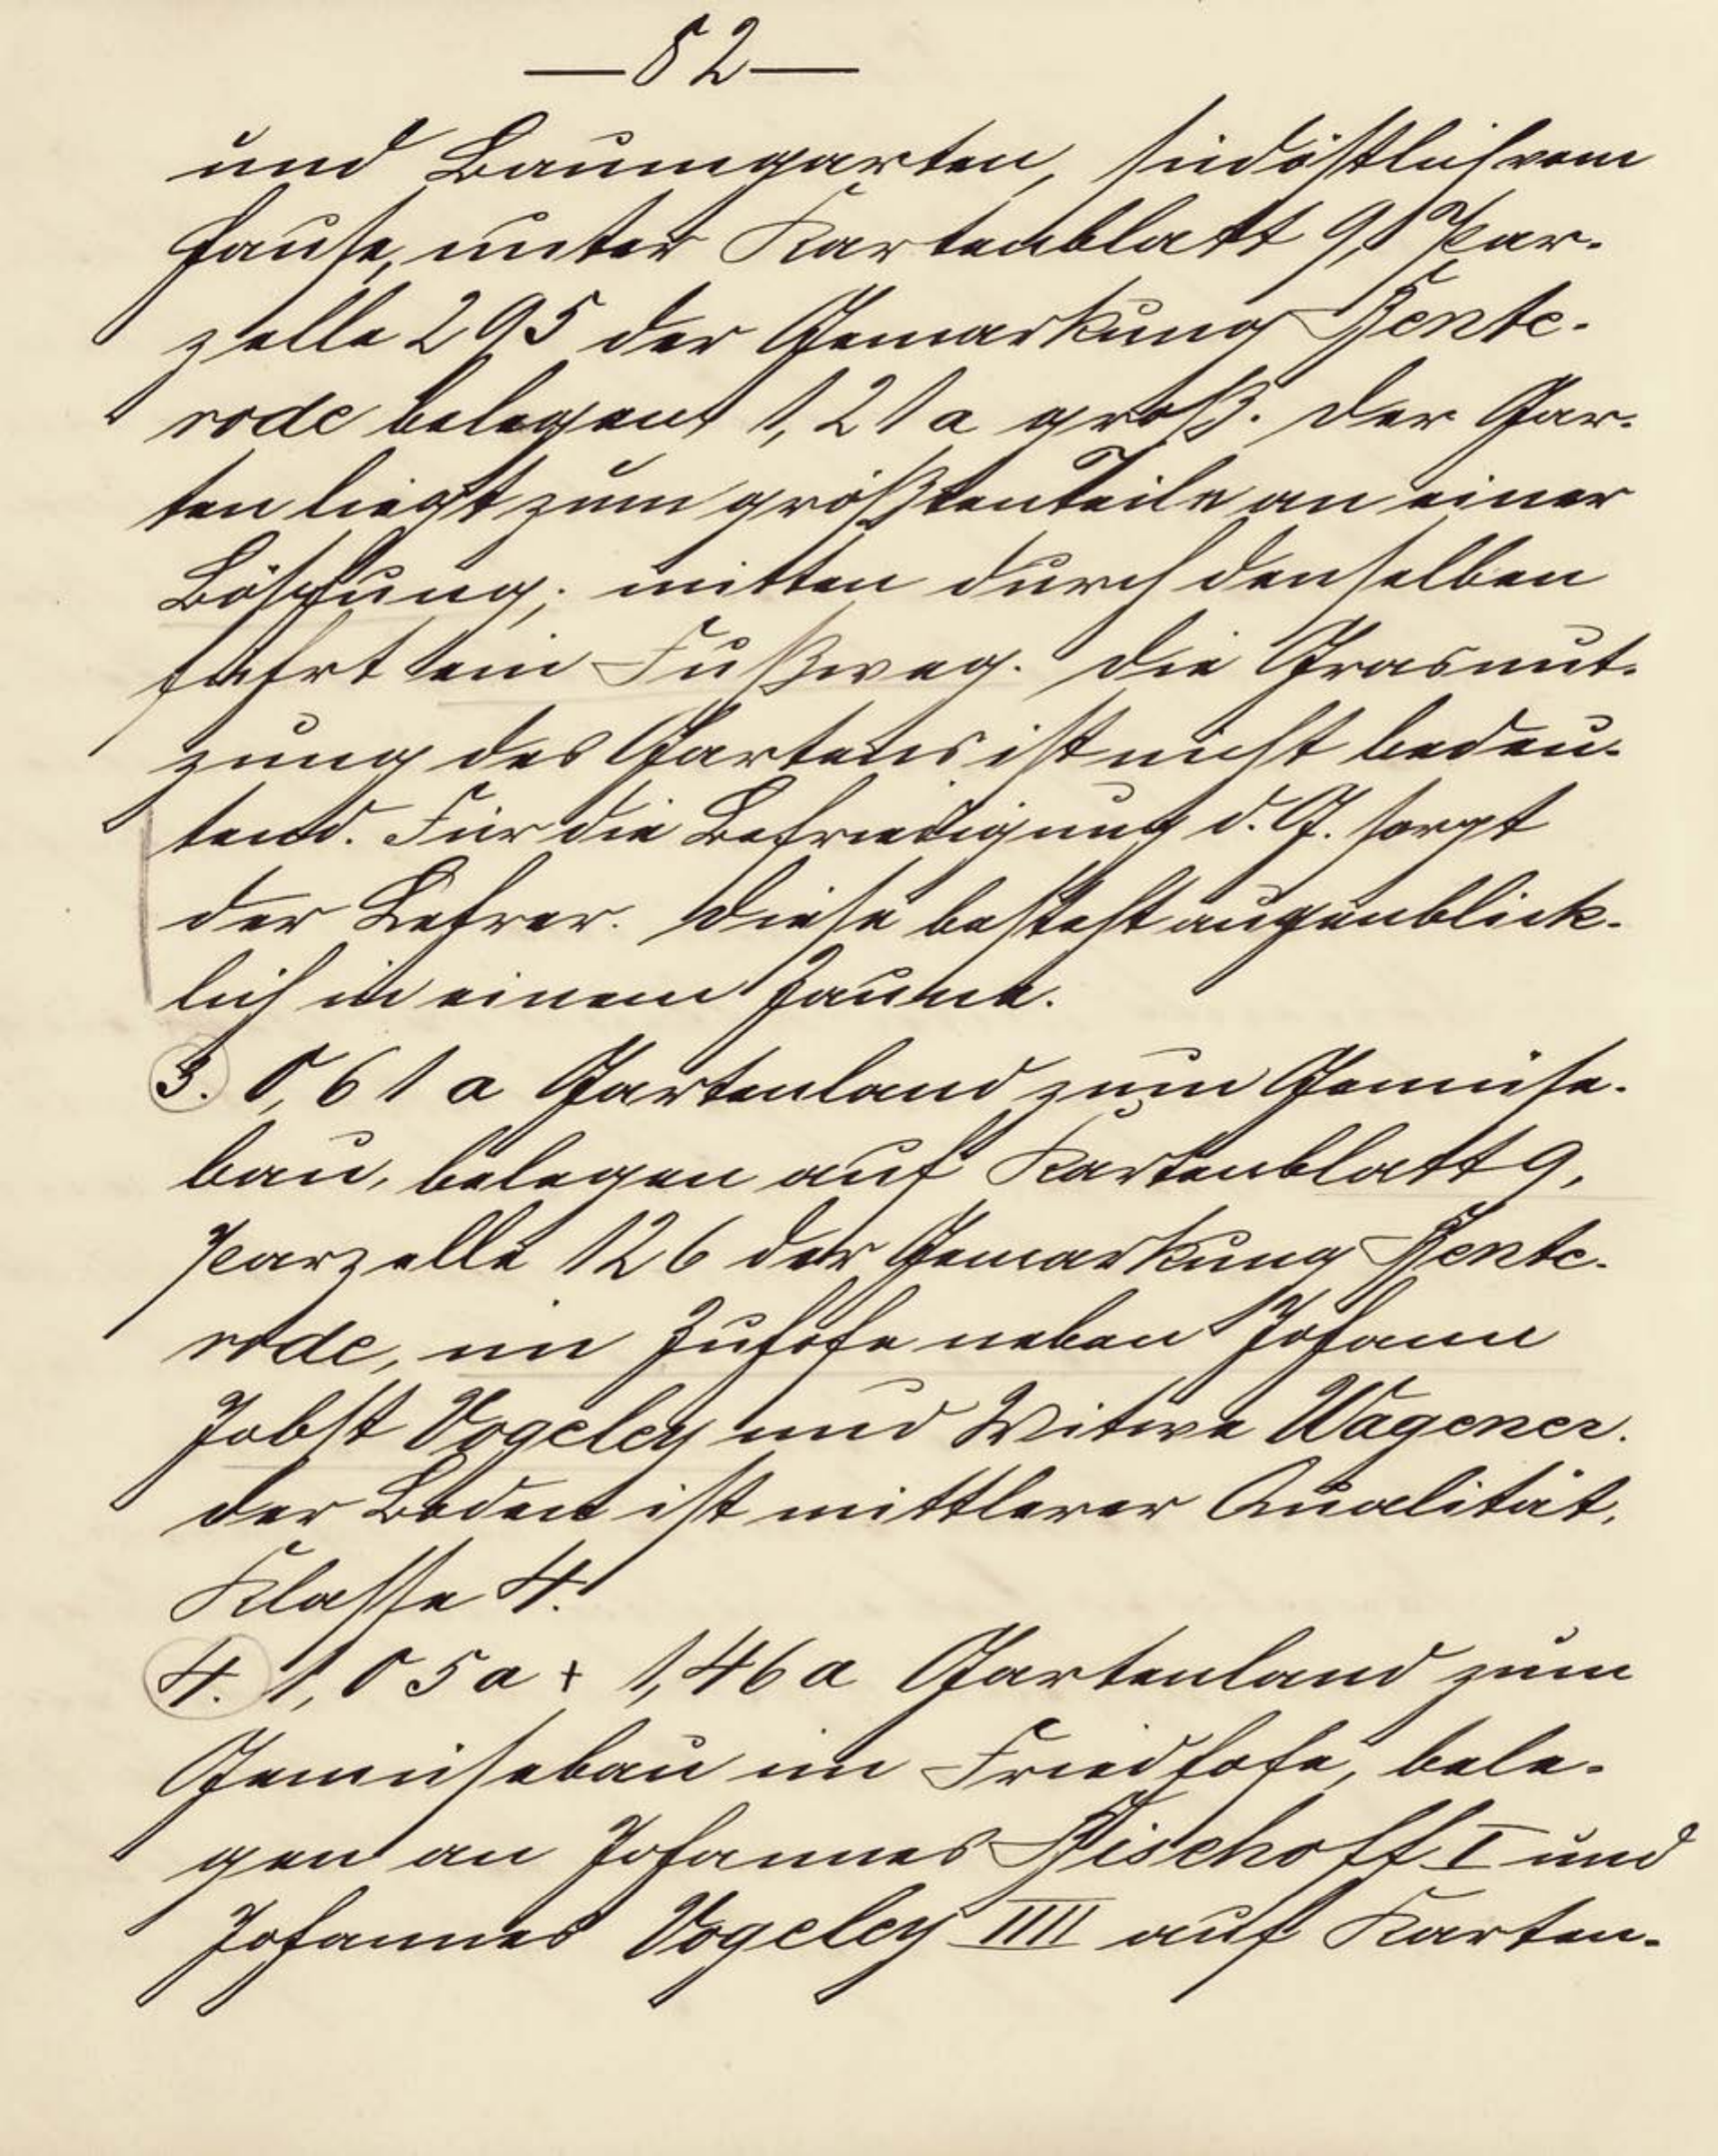 — 82 —
und Baumgarten, südöstlich vom
Hause, unter Kartenblatt 9, Par-
zelle 295 der Gemarkung Bente-
rode belegen, 1,21 a groß. Der Gar-
ten liegt zum größten Teile an einer
Böschung; mitten durch denselben
führt ein Fußweg. Die Grasnut-
zung des Gartens ist nicht bedeu-
tend. Für die Befriedigung d. G. sorgt
der Lehrer. Diese besteht augenblick-
lich in einem Zaune.
3. 0,61 a Gartenland zum Gemüse-
bau, belegen auf Kartenblatt 9,
Parzelle 126 der Gemarkung Bente-
rode, im Zuhofe neben Johann
Jobst Vogeley und Witwe Wagener.
Der Boden ist mittlerer Qualität,
Klasse 4.
4. 1,05 a + 1,46 a Gartenland zum
Gemüsebau im Friedhofe, bele-
gen an Johannes Bischoff I und
Johannes Vogeley IIII auf Karten-